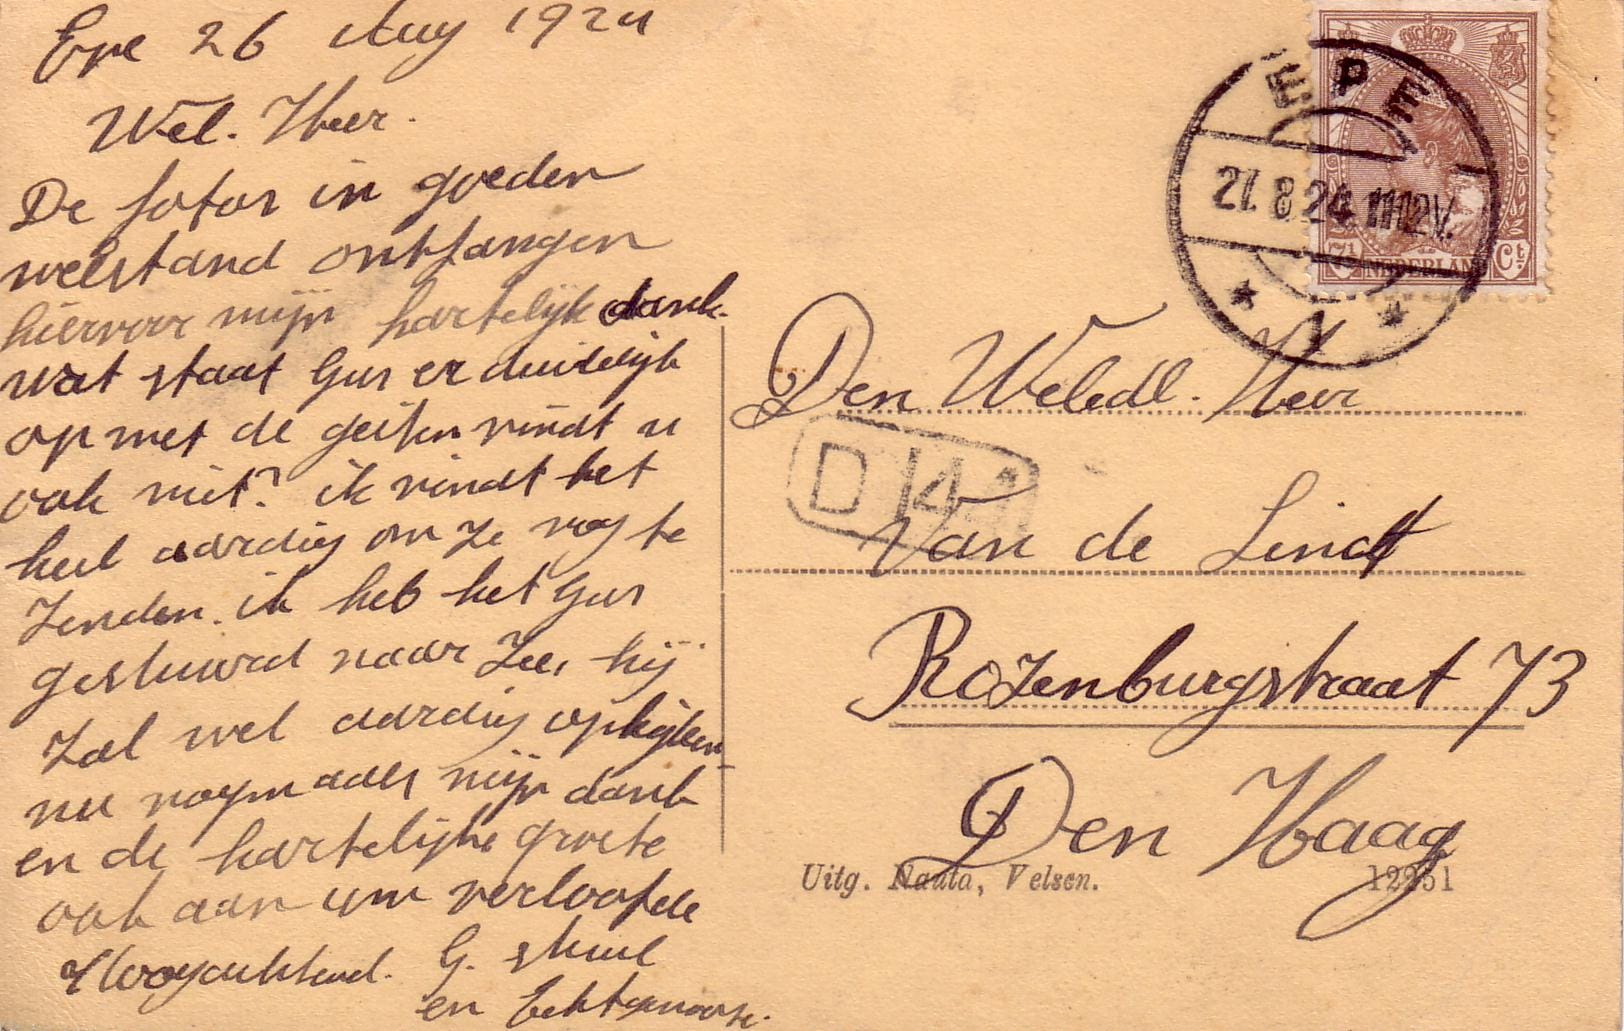 Epe 26 Aug 1924
Wel. Heer.
De fotos in goeden
welstand ontfangen
hiervoor mijn hartelijk dank.
wat staat Gus er duidelijk
op met de geiten vindt u
ook niet? ik vindt het
heel aardig om ze nog te
zenden. ik heb het Gus
gestuurd naar Zee, hij
zal wel aardig opkijken
nu nogmaals mijn dank
en de hartelijke groete
ook aan uw verloofde
Hoogachtend. G.
en Echtgenoote.
EPE
27.8.24.11-12V.
1
7½ NEDERLAND Ct
Den Weledl. Heer
D 44
Van de Lindt
Rozenburgstraat 73
Den Haag
Uitg. Nauta, Velsen. 12251